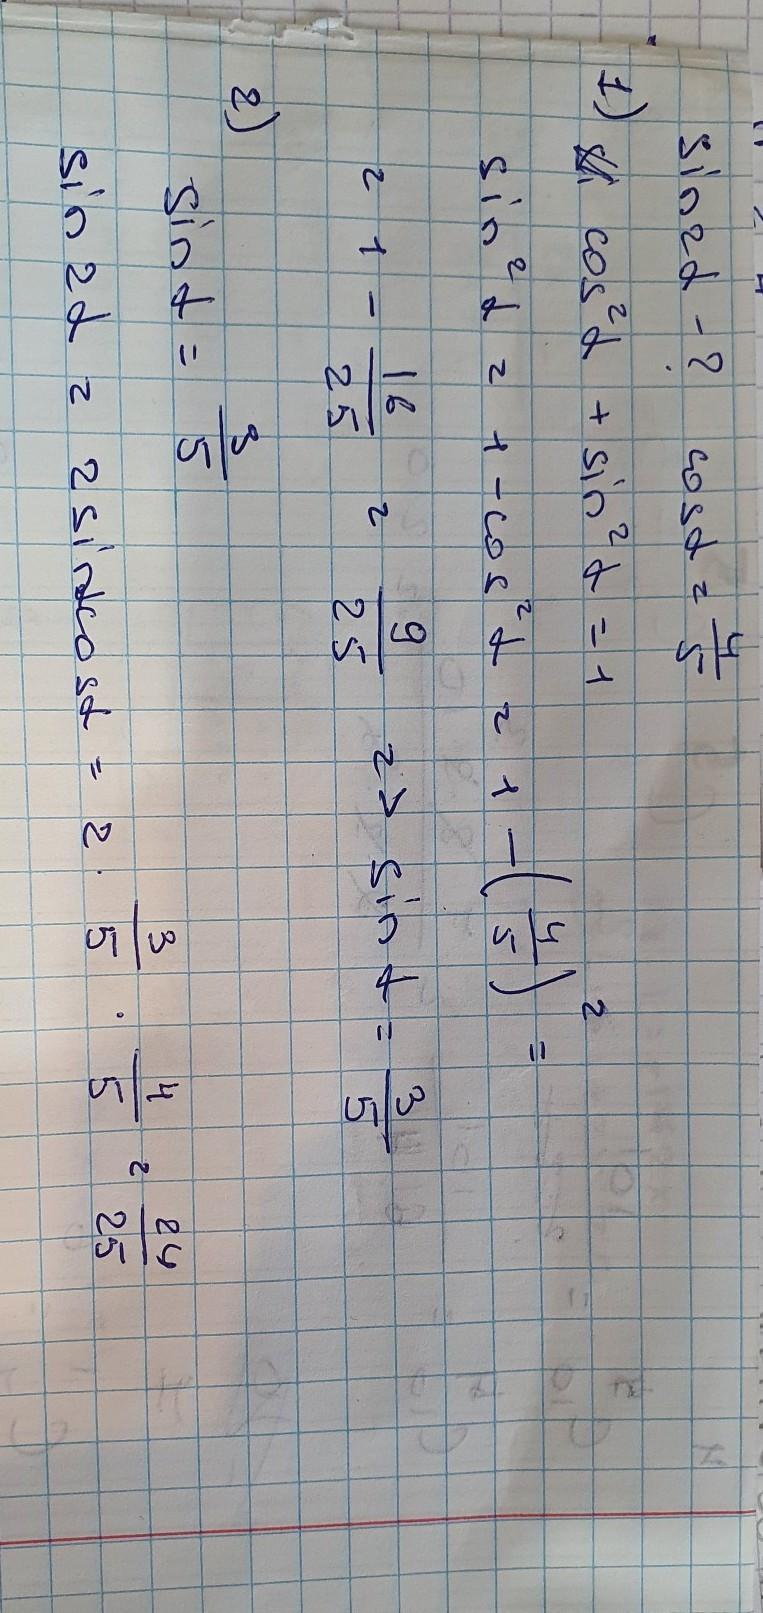 sin2α - ? cosα = 4/5
1) cos²α + sin²α = 1
sin²α = 1 - cos²α = 1 - (4/5)² =
= 1 - 16/25 = 9/25 => sin α = 3/5
2)
sin α = 3/5
sin 2α = 2 sinαcosα = 2 · 3/5 · 4/5 = 24/25